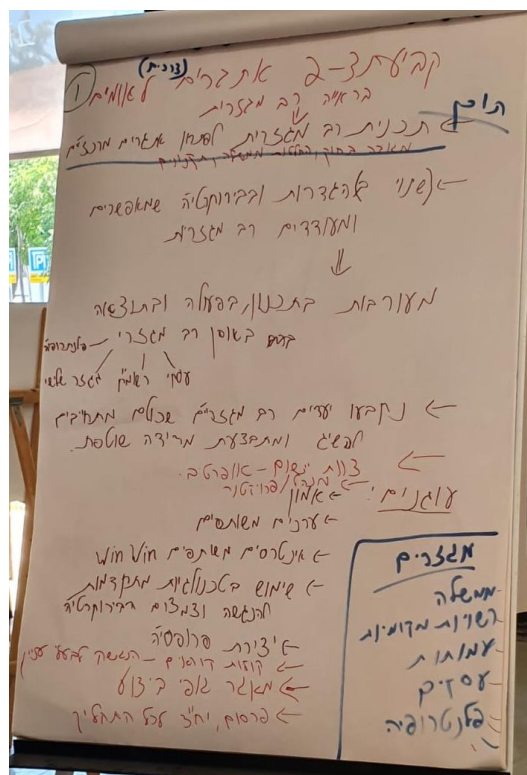 קביעת 2-3 אתגרים לאומיים
(צרכים)
①
בראייה רב מגזרית
תוכן
תכנית רב מגזרית לפתרון אתגרים מרכזיים
החלטות ממשלה, תקנונים
← שנוי בהגדרות ובבירוקרטיה שמאפשרים
ומעודדים רב מגזריות
מעורבות בתכנון, בפעולה ובתוצאה
בשוסן רב מגזרי - פלנתרופיה
עסקי מגזר שלישי
← נקבעו יעדים רב מגזריים שכולם מתחייבים
להשיג ומתבצעת מדידה שוטפת.
← צוות יישום - אופרטיבי
עוגנים:
← אמון
← ערכים משותפים
← אינטרסים משותפים Win Win
← שימוש בטכנולוגיות מתקדמות
להנגשה וצמצום הבירוקרטיה
← יצירת פרופסיה
← קולות קוראים - הנגשה לבעלי עניין
← מאגר גופי ביצוע
← פרסום, יח"צ לכל התהליך
מגזרים
ממשלה
רשויות מקומיות
עמותות
עסקים
פלנטרופיה